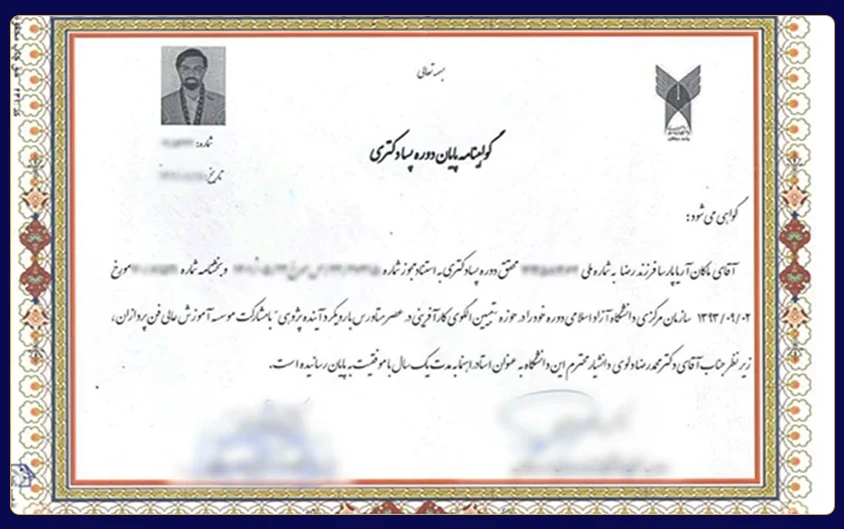 بسمه تعالی
گواهینامه پایان دوره پسادکتری
شماره:
تاریخ:
گواهی می شود:
آقای ماکان آریا پارسا فرزند رضا به شماره ملی محقق دوره پسادکتری به استناد مجوز شماره و بخشنامه شماره مورخ
۱۳۹۳/۰۹/۰۲ سازمان مرکزی دانشگاه آزاد اسلامی دوره خود را در حوزه "تبیین الگوی کارآفرینی در عصر متاورس با رویکرد آینده پژوهی" با مشارکت موسسه آموزش عالی فن پردازان،
زیر نظر جناب آقای دکتر محمدرضا دلوی دانشیار محترم این دانشگاه به عنوان استاد راهنما به مدت یک سال با موفقیت به پایان رسانیده است.